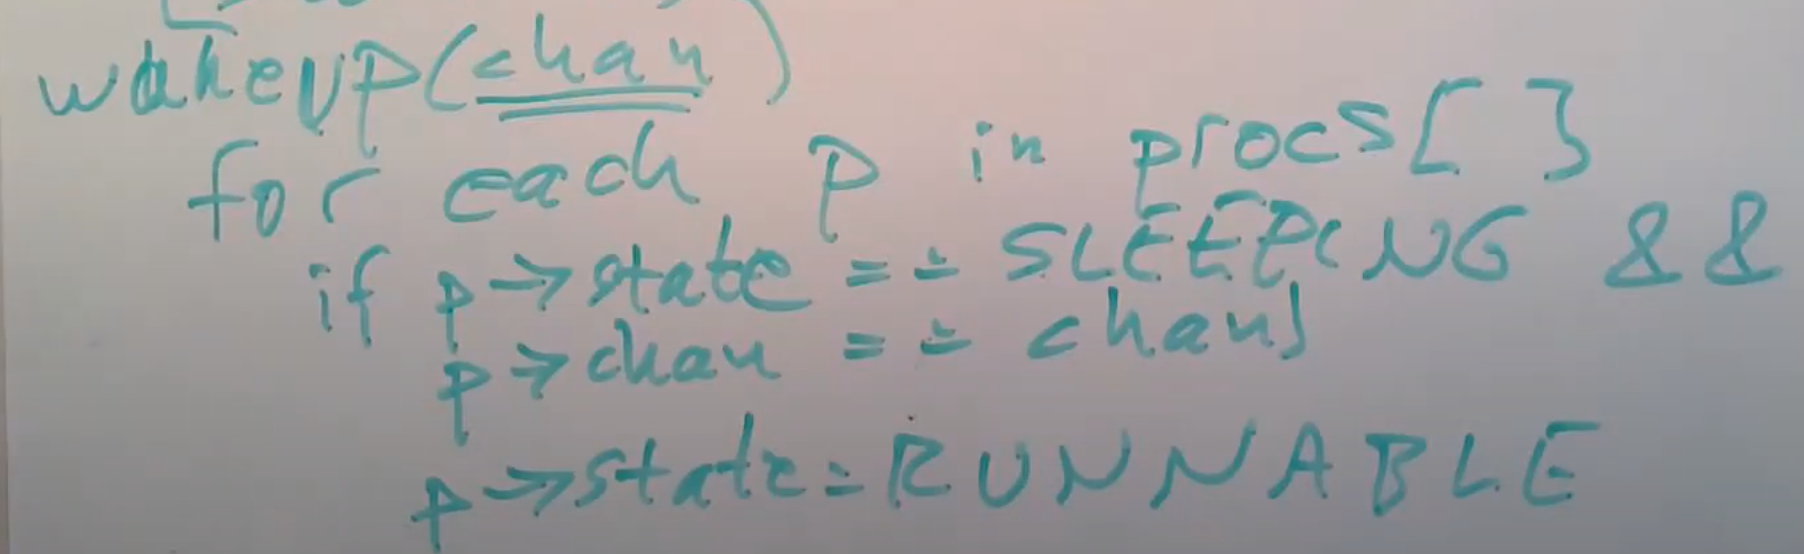 wakeup(chan)
for each p in procs[ ]
if p->state == SLEEPING &&
p->chan == chan)
p->state=RUNNABLE